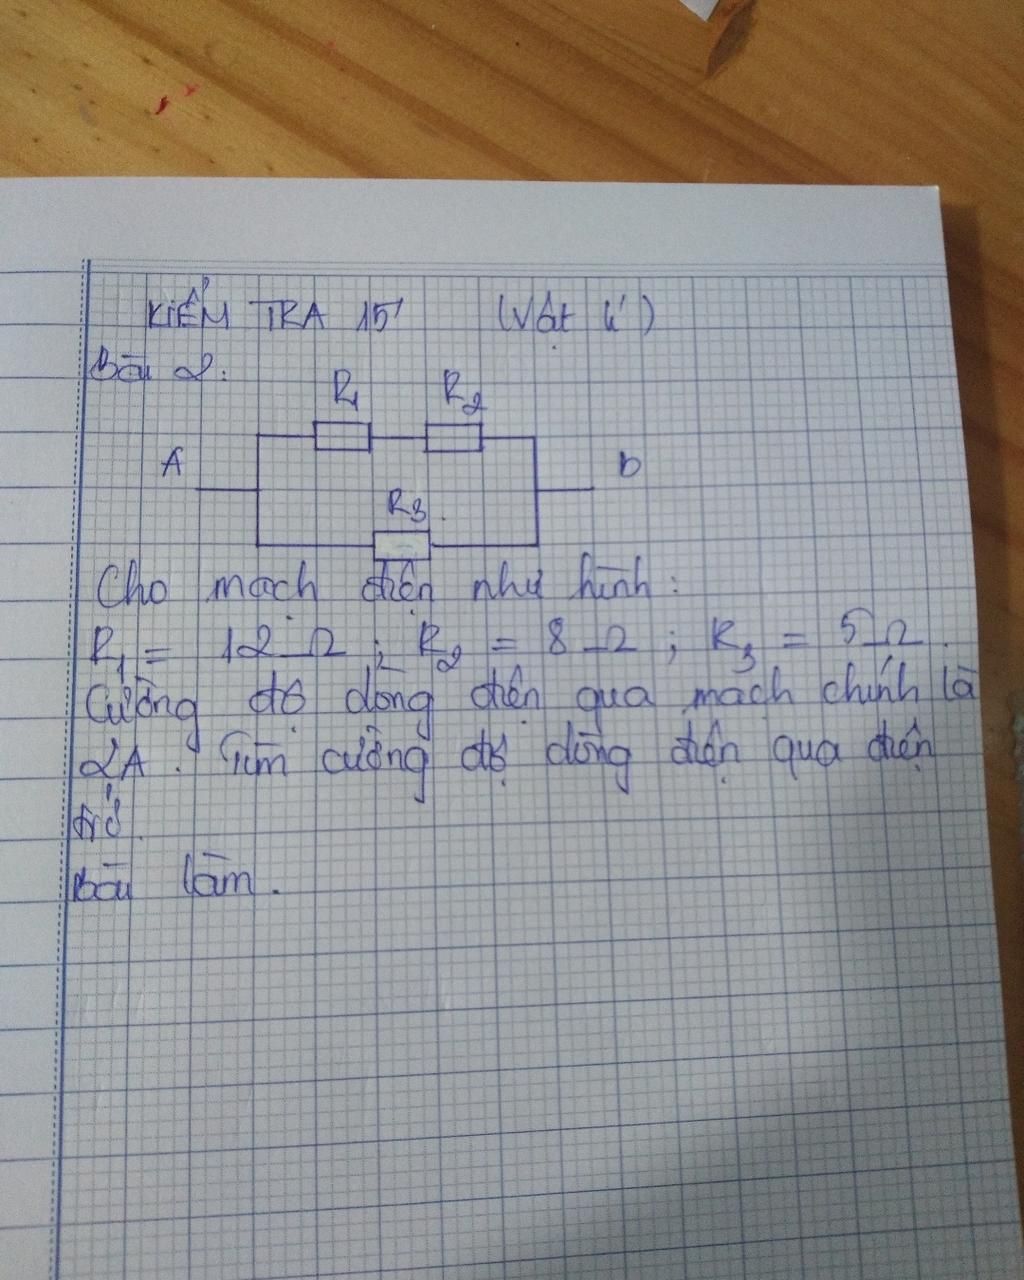 KIỂM TRA 15' (Vật lí)
Bài 2:
R1 R2
A B
R3
Cho mạch điện như hình:
R1 = 12 Ω ; R2 = 8 Ω ; R3 = 5 Ω.
Cường độ dòng điện qua mạch chính là
2A. Tìm cường độ dòng điện qua điện
trở.
Bài làm.